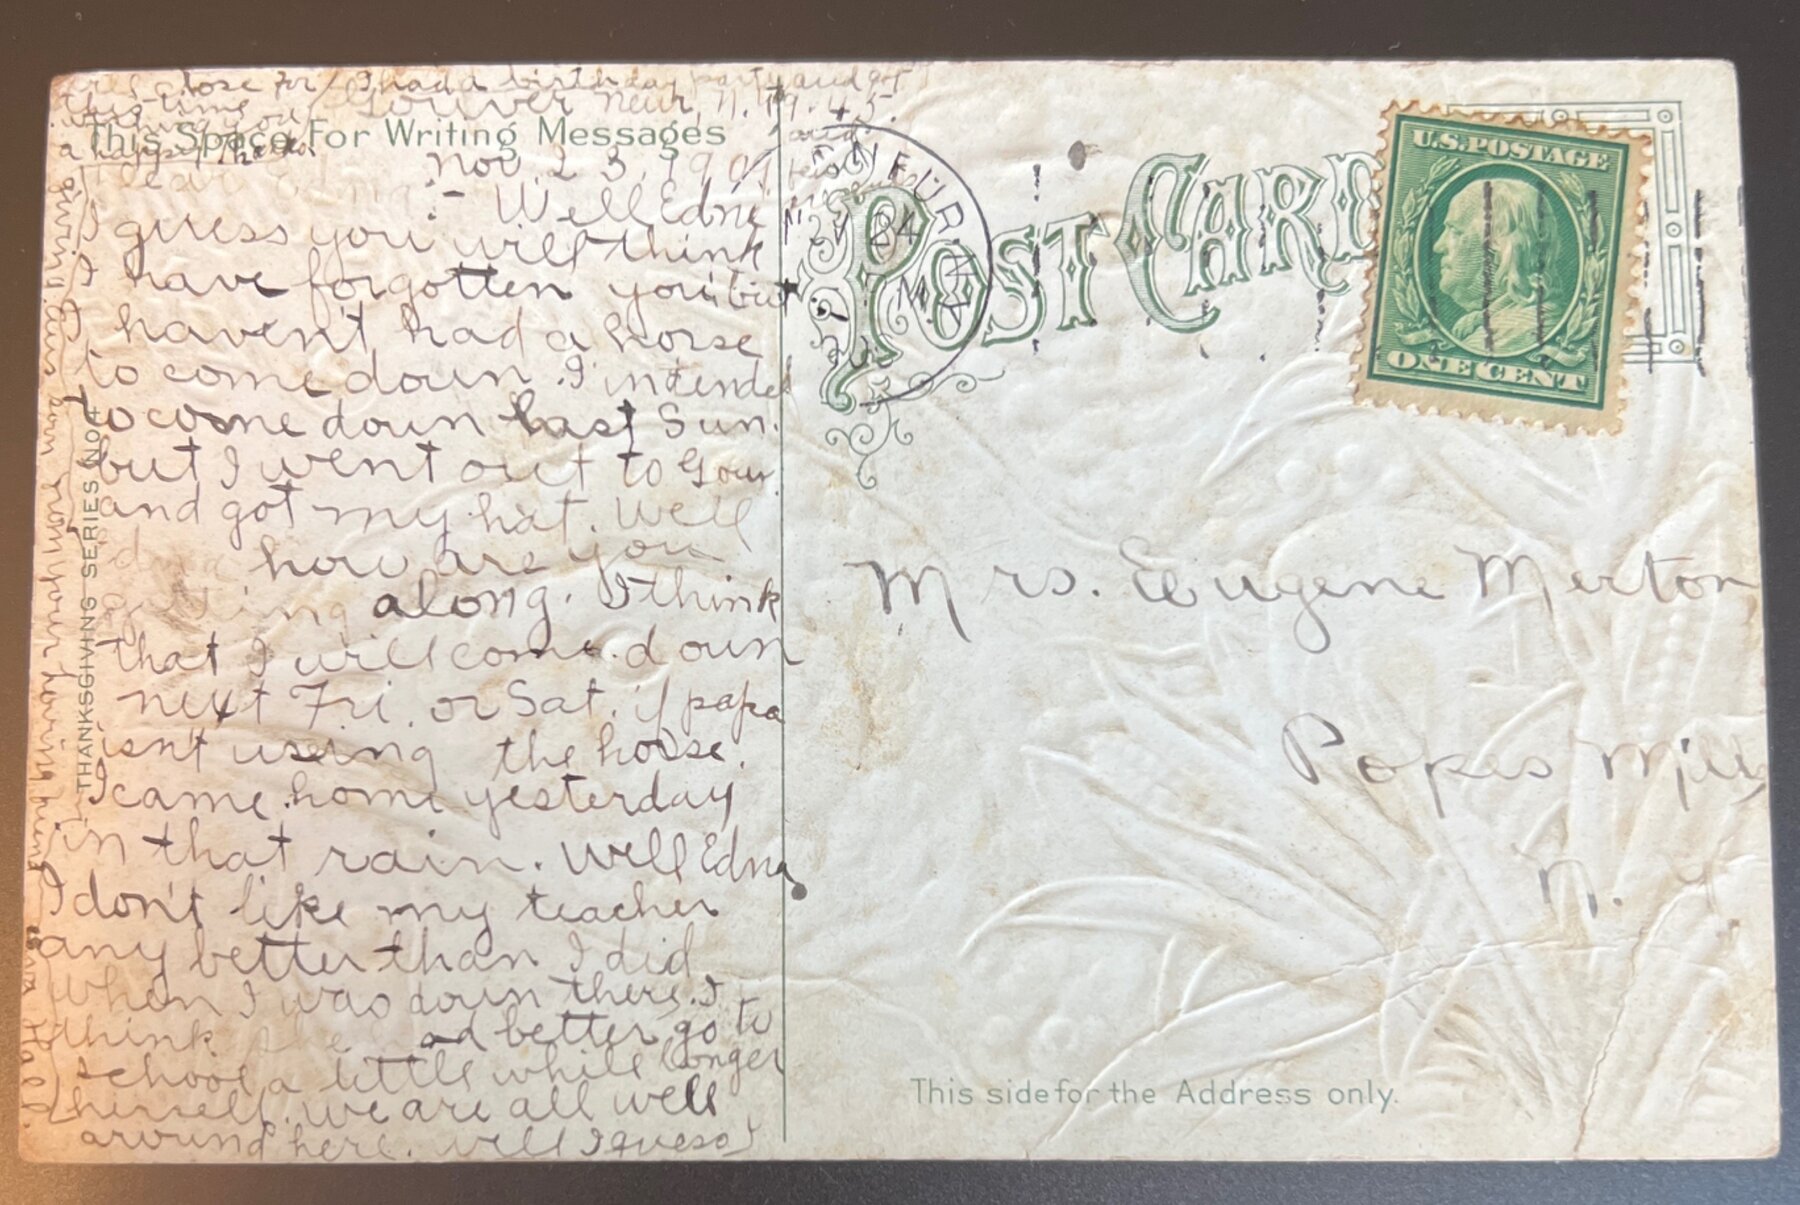 close for I had a birthday party and got
this time Gouverneur, N.Y. R. 5.
wishing you
This Space For Writing Messages
a happy
Nov. 23, 190
Dear Edna:- Well Edna
I guess you will think
I have forgotten you but
I haven't had a horse
to come down. I intended
to come down last Sun.
but I went out to Gouv.
and got my hat. Well
how are you
getting along. I think
that I will come down
next Fri. or Sat. if papa
isn't using the horse.
I came home yesterday
in that rain. Well Edna
I don't like my teacher
any better than I did
when I was down there. I
think she had better go to
school a little while longer
herself. we are all well
around here. well I guess I
THANKSGIVING SERIES NO. 4
giving from your loving
Hall.
NEUR
N V 24
M
N.Y.
POST CARD
U.S. POSTAGE
ONE CENT
Mrs. Eugene Merton
Popes Mills
N. Y.
This side for the Address only.